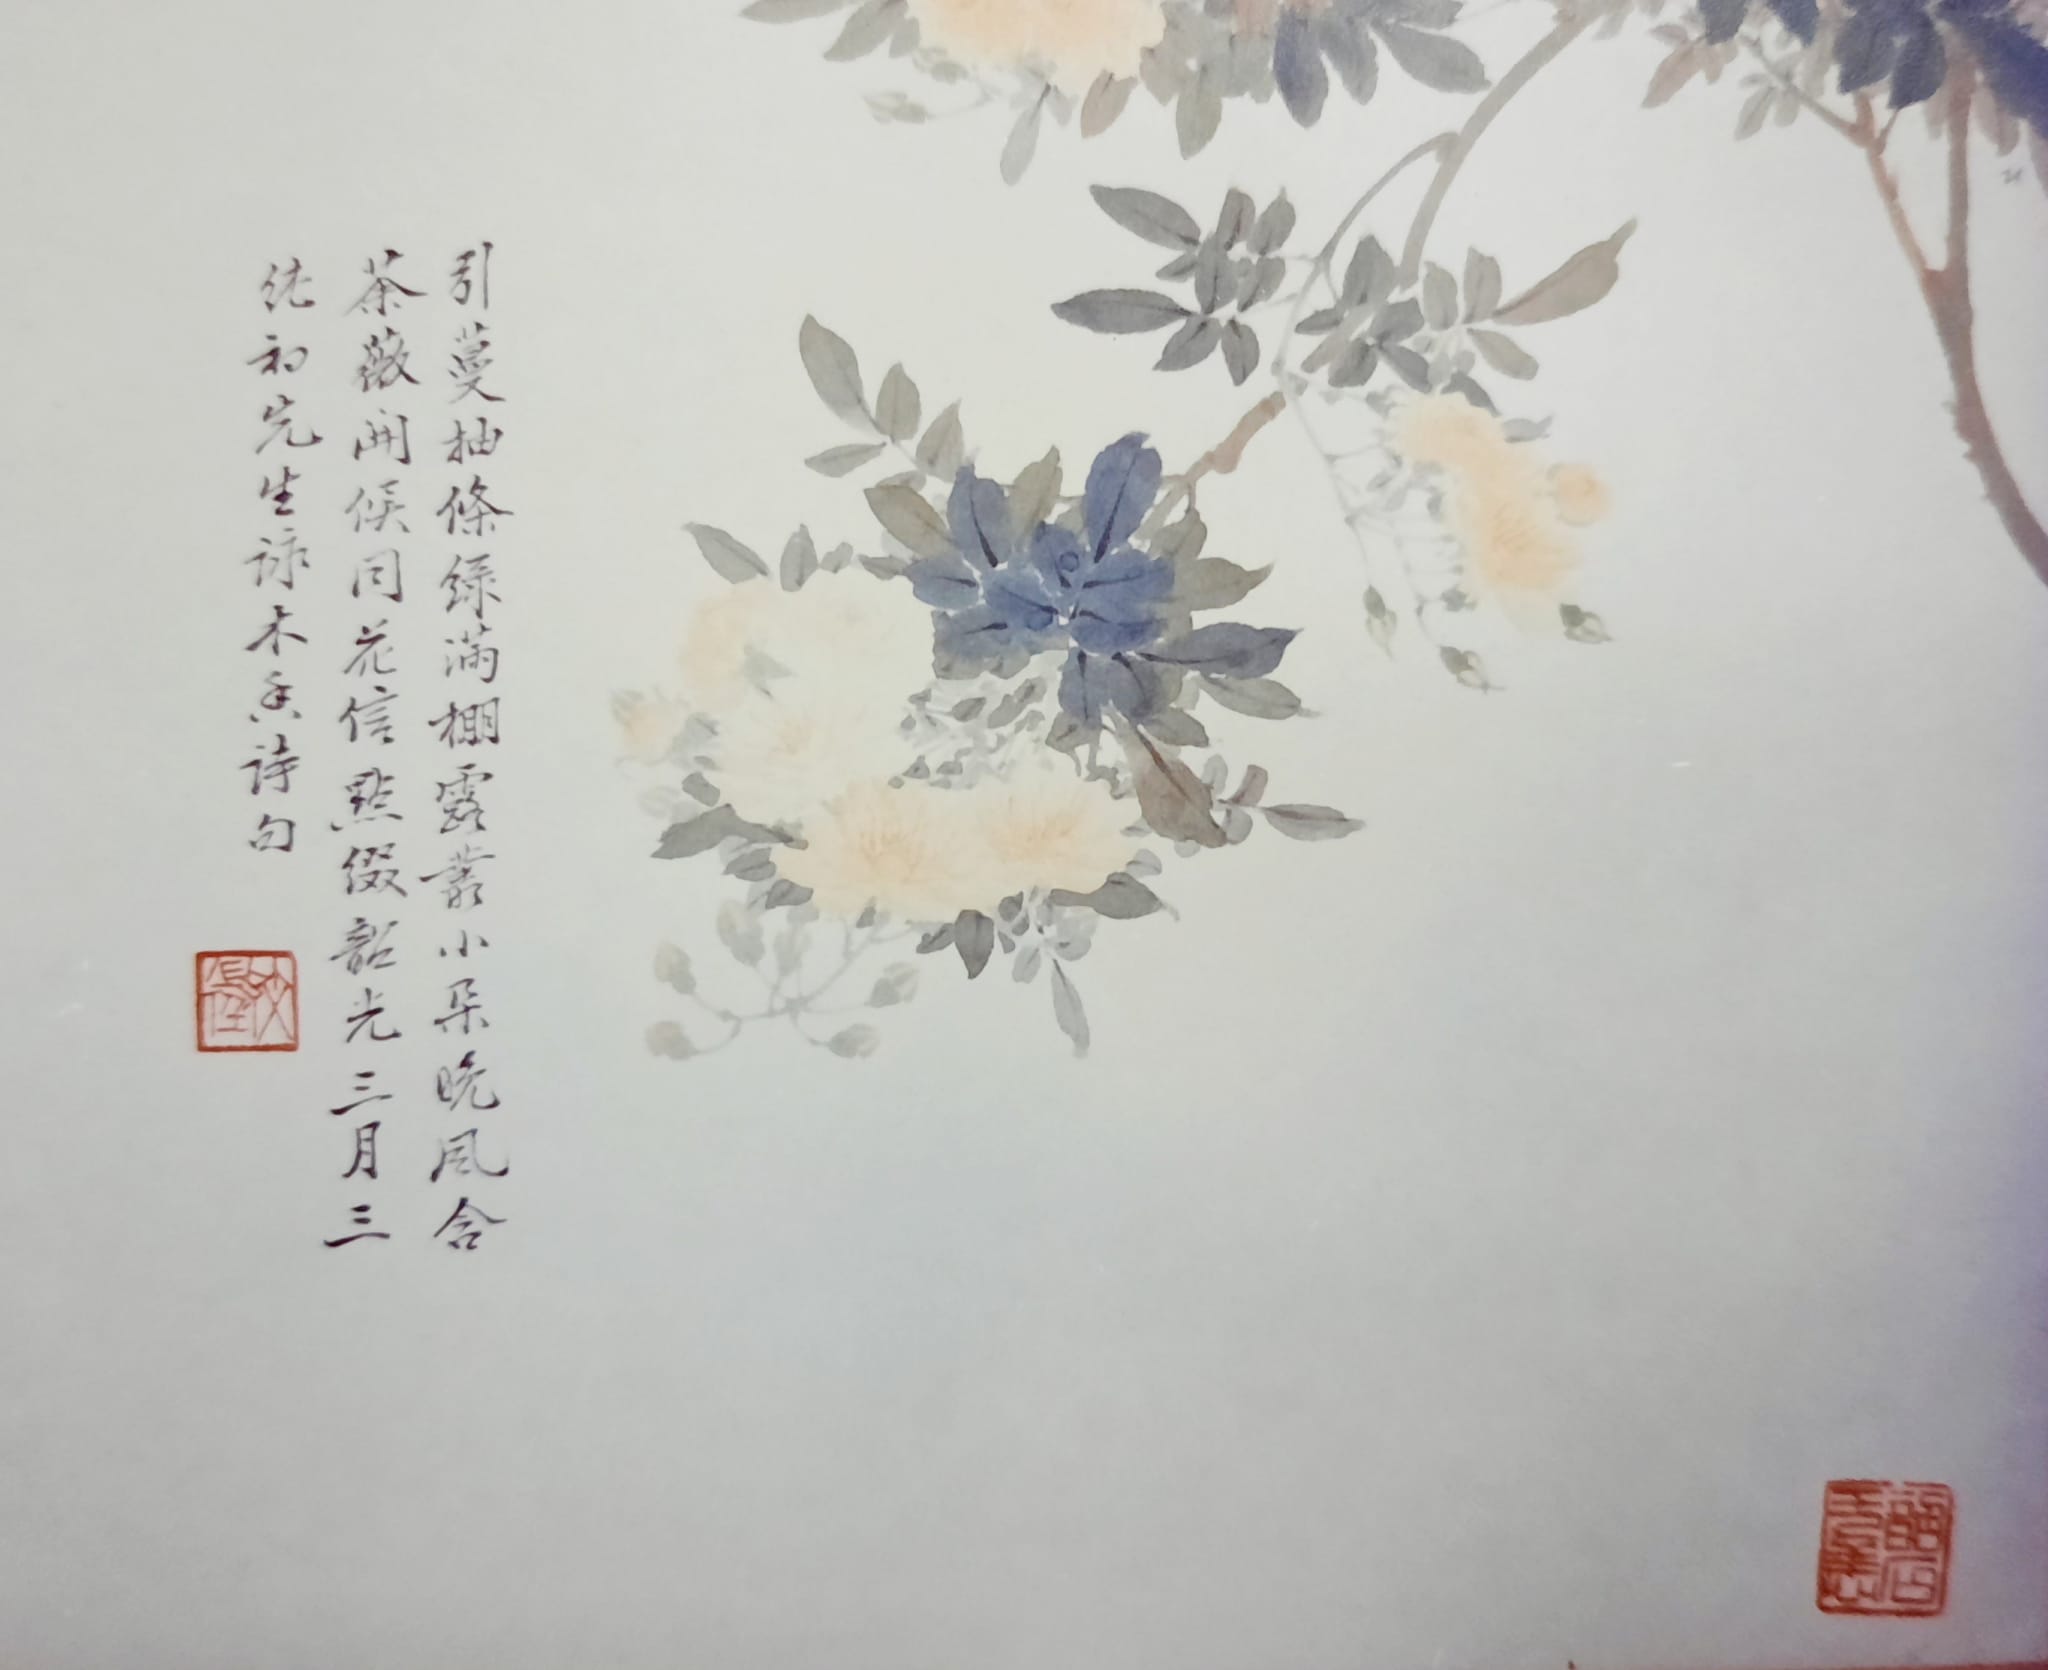 引蔓抽條綠滿棚露叢小朵晚風含
荼薇開候同花信點綴韶光三月三
純初先生詠木香詩句